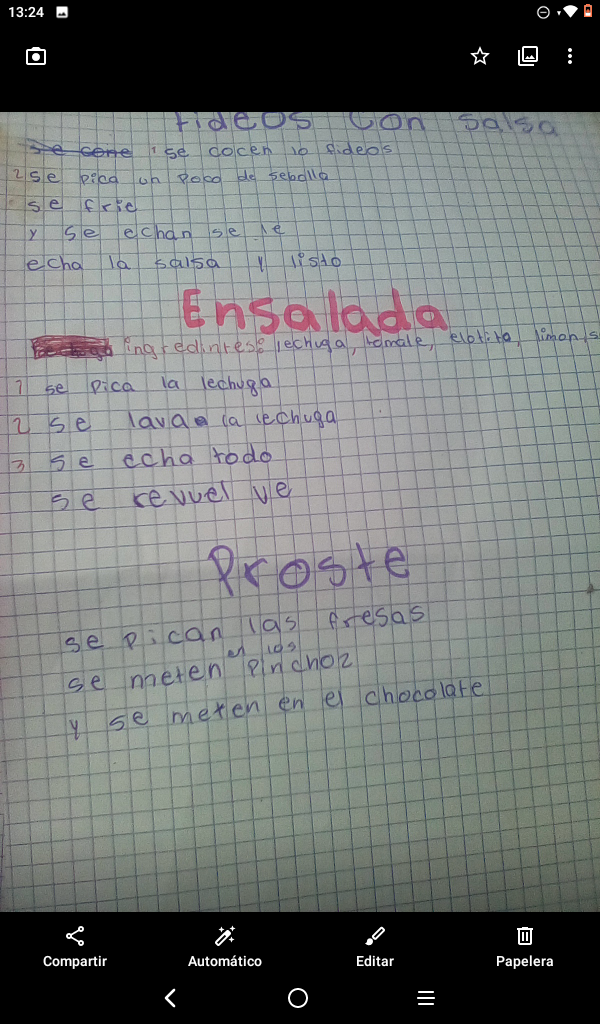 13:24
fideos con salsa
se cone 1 se cocen lo fideos
2 se pica un poco de sebolla
se frie
y se echan se le
echa la salsa y listo
Ensalada
ingredintes: lechuga, tomale, elotito, limon, s
1 se pica la lechuga
2 se lava la lechuga
3 se echa todo
se revuel ve
Proste
se pican las fresas
se meten en los pinchoz
y se meten en el chocolate
Compartir Automático Editar Papelera